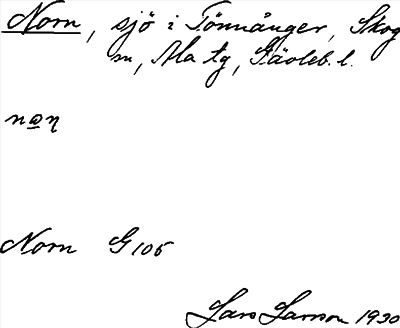 Norn, sjö i Tönnånger, Skog
sn, Ala tg, Gävleb. l.
Norn G 106
Lars Larsson 1930